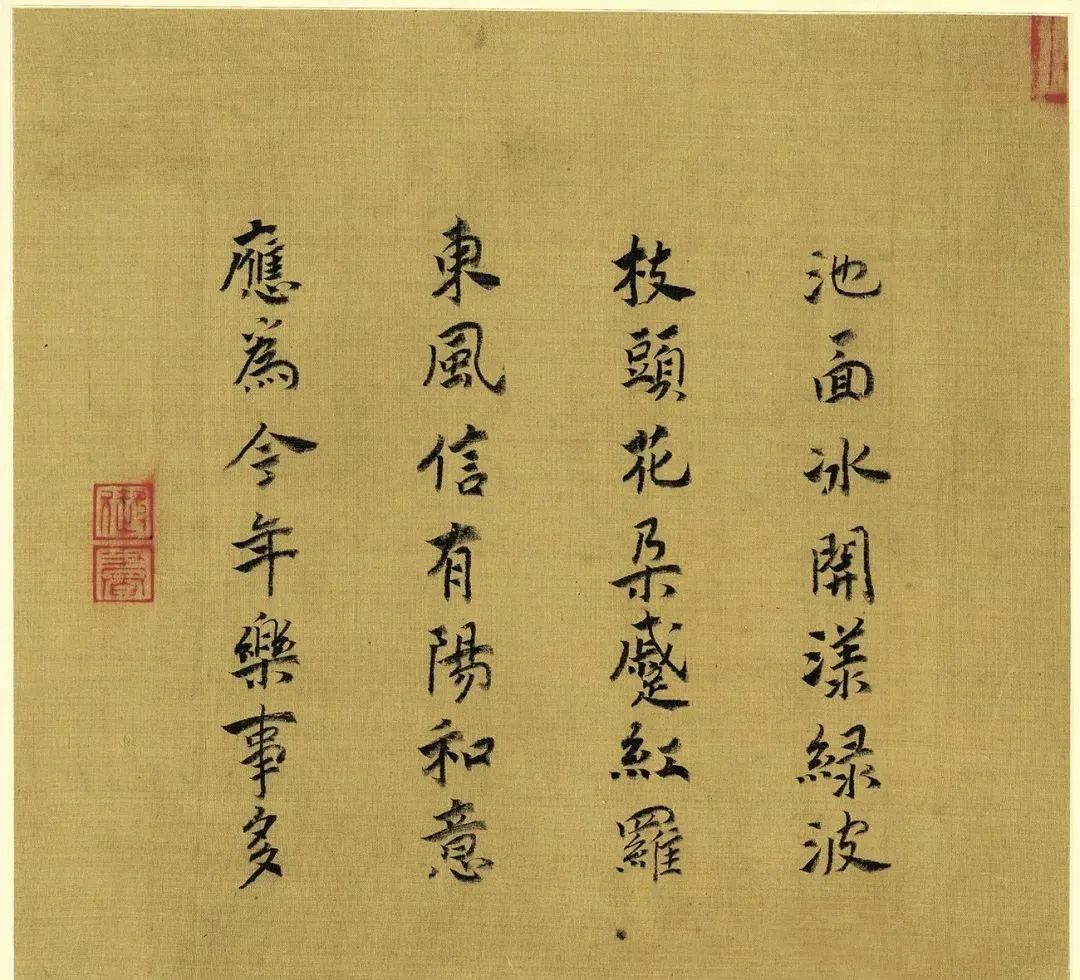 池面冰開漾綠波
枝頭花朵蹙紅羅
東風信有陽和意
應為今年樂事多
御書